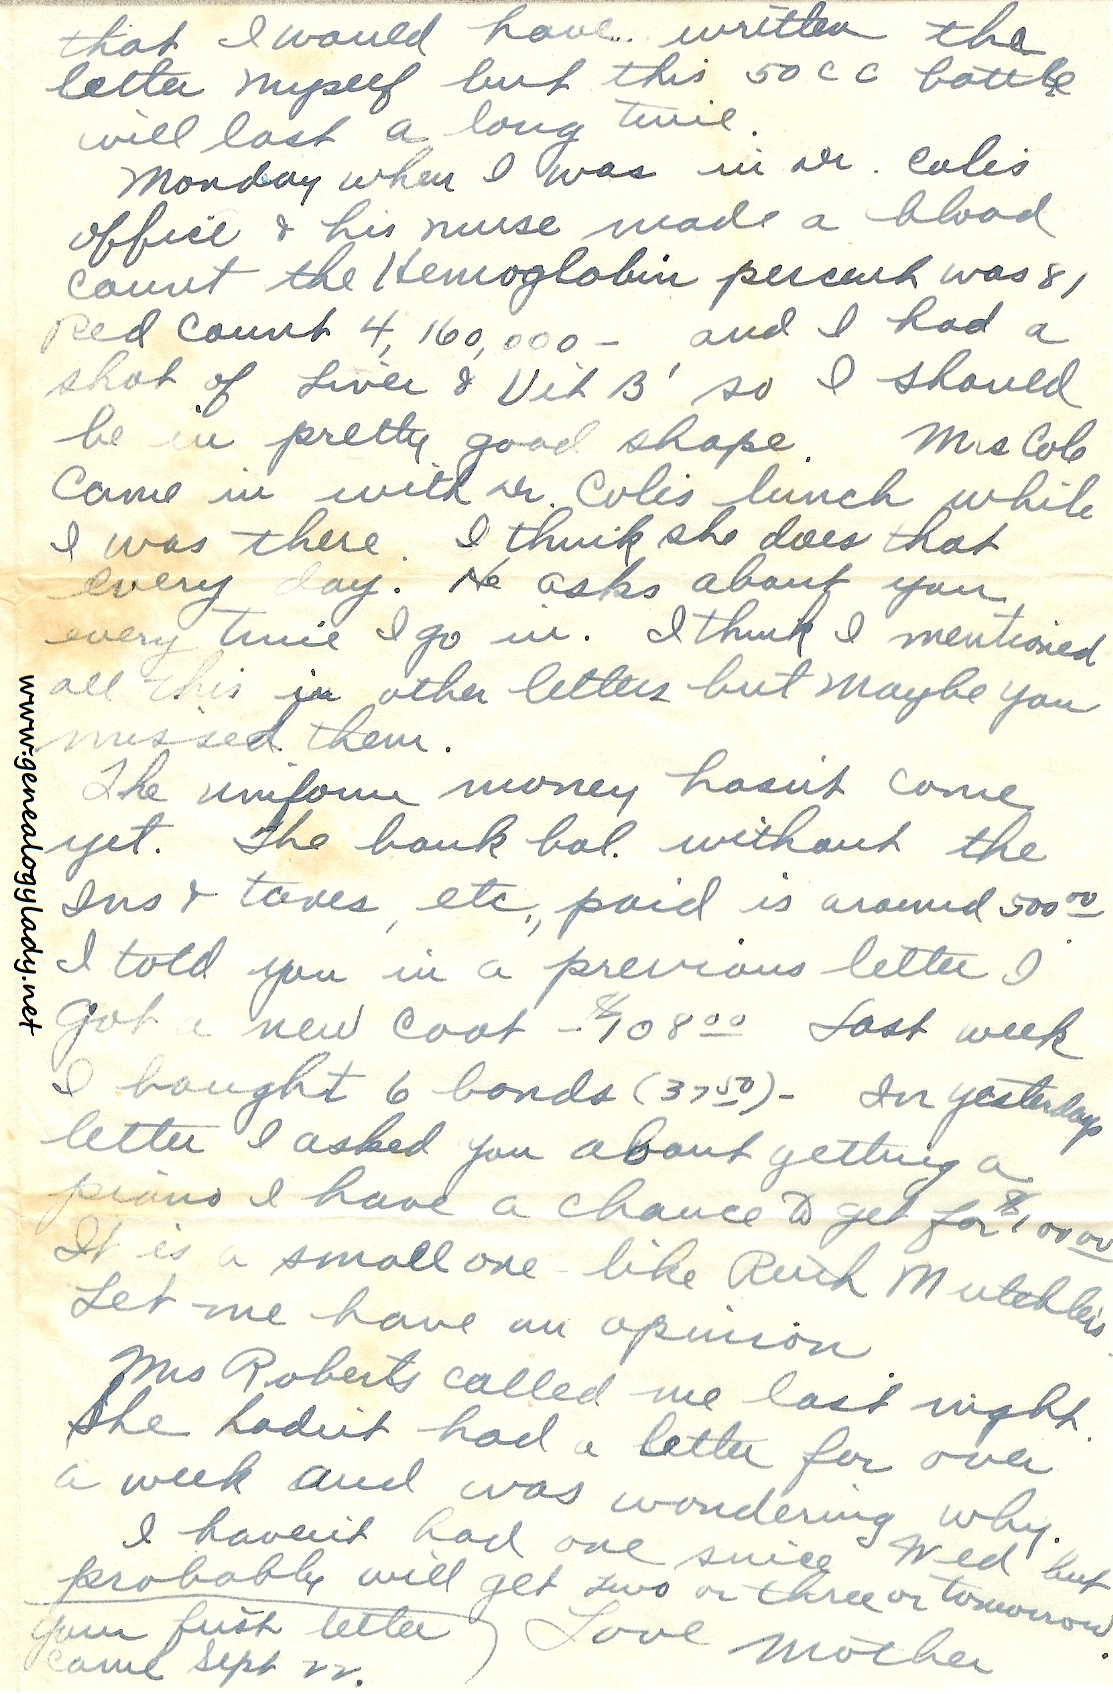 that I would have written the
letter myself but this 50 CC bottle
will last a long time.
Monday when I was in Dr. Coles
office & his nurse made a blood
count the Hemoglobin percent was 81
Red Count 4,160,000 – and I had a
shot of Liver & Vit B' so I should
be in pretty good shape. Mrs Cole
came in with Dr. Coles lunch while
I was there. I think she does that
every day. He asks about you
every time I go in. I think I mentioned
all this in other letters but maybe you
missed them.
The uniform money hasn't come
yet. The bank bal. without the
Ins & taxes, etc., paid is around 500 00
I told you in a previous letter I
got a new coat – $108 00 Last week
I bought 6 bonds (37 50) – In yesterdays
letter I asked you about getting a
piano I have a chance to get for $100 00
It is a small one like Ruth Mutchlers.
Let me have an opinion
Mrs Roberts called me last night.
She hadn't had a letter for over
a week and was wondering why.
I haven't had one since Wed but
probably will get two or three or tomorrow.
your first letter ) Love Mother
came Sept 22.
www.genealogylady.net